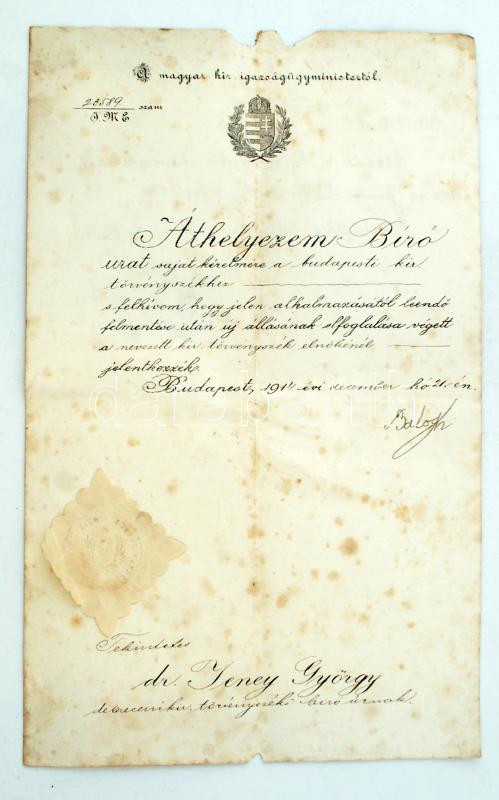 A magyar kir. igazságügyministertől.
28589 szám
I. M. E.
Áthelyezem Biró
urat saját kérelmére a budapesti kir.
törvényszékhez
s felhivom, hogy jelen alkalmazásától leendő
felmentése után új állásának elfoglalása végett
a nevezett kir. törvényszék elnökénél
jelentkezzék.
Budapest, 1914 évi december hó 21-én.
Balogh
Tekintetes
dr. Jeney György
debreceni kir. törvényszéki biró úrnak.